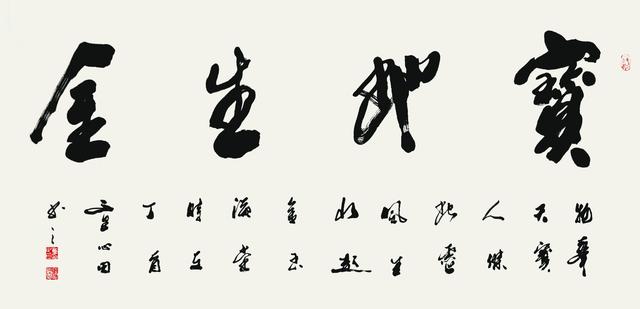 寶地生金
物華
天寶
人傑
地靈
風生
水起
金玉
滿堂
時在
丁酉
心田